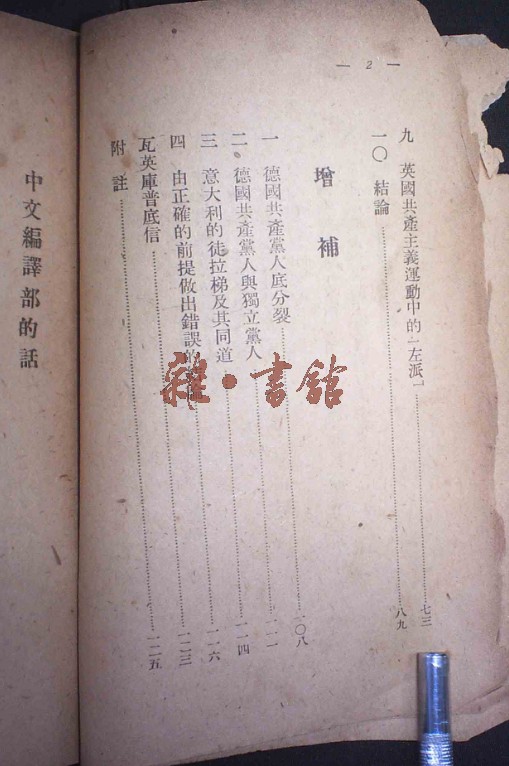 — 2 —
九 英國共產主義運動中的「左派」 七三
一〇 結論 八九
增補
一 德國共產黨人底分裂 一〇八
二 德國共產黨人與獨立黨人 一一一
三 意大利的徒拉梯及其同道 一一四
四 由正確的前提做出錯誤的 一一六
瓦英庫普底信 一二三
附註 一二五
中文編譯部的話
雜·書館